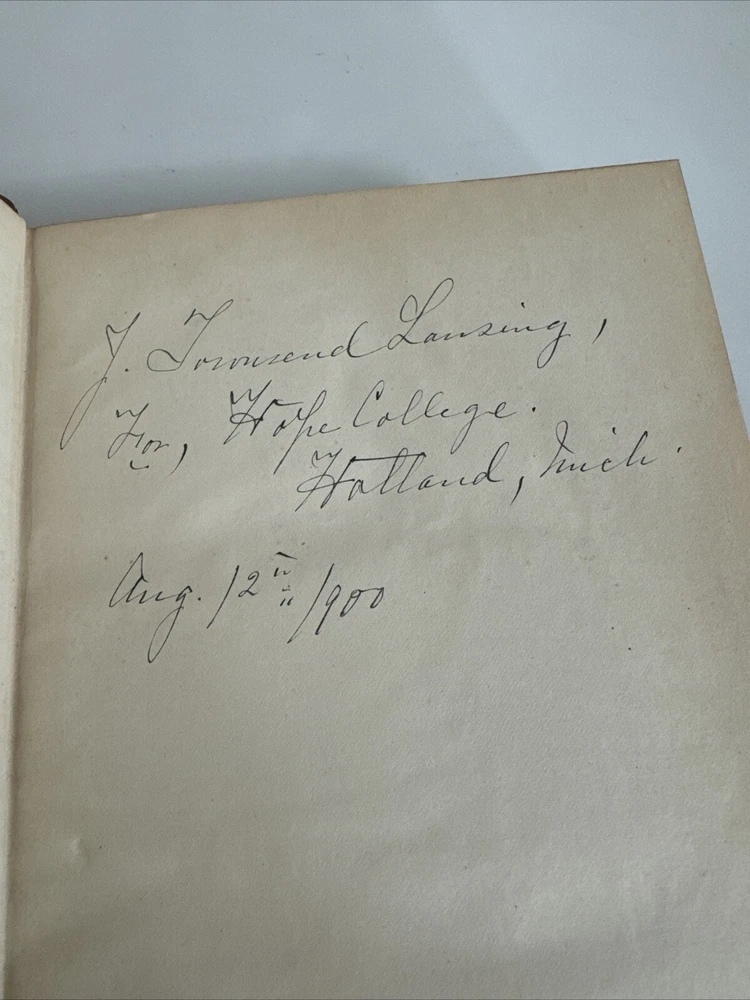 J. Townsend Lansing,
For, Hope College.
Holland, Mich.
Aug. 12th 1900